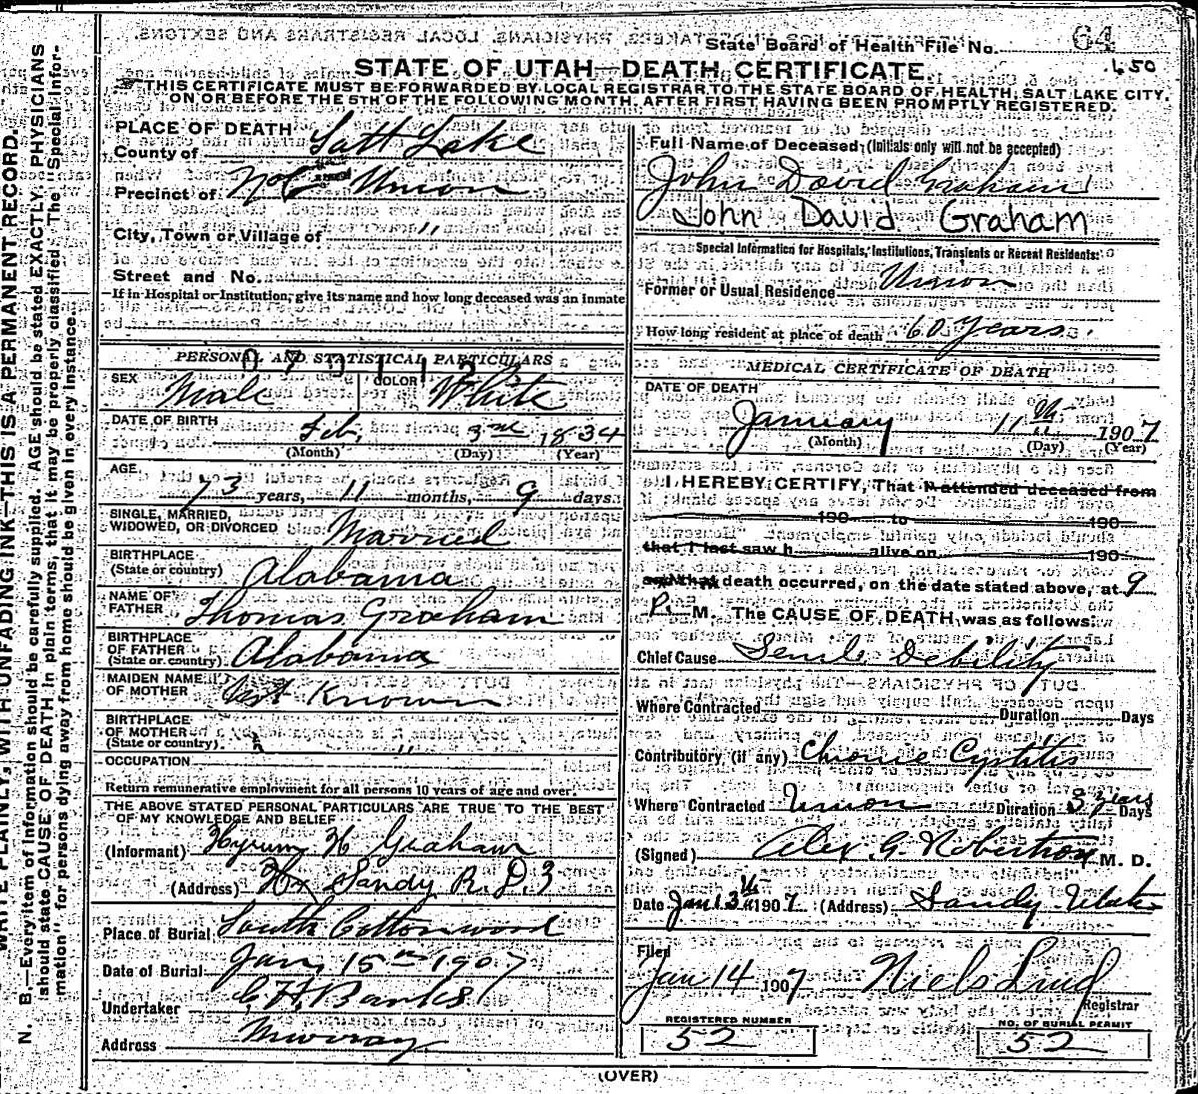 State Board of Health File No. 64
650
STATE OF UTAH—DEATH CERTIFICATE
THIS CERTIFICATE MUST BE FORWARDED BY LOCAL REGISTRAR TO THE STATE BOARD OF HEALTH, SALT LAKE CITY,
ON OR BEFORE THE 5TH OF THE FOLLOWING MONTH, AFTER FIRST HAVING BEEN PROMPTLY REGISTERED.
WRITE PLAINLY, WITH UNFADING INK—THIS IS A PERMANENT RECORD.
N. B.—Every item of information should be carefully supplied. AGE should be stated EXACTLY. PHYSICIANS
should state CAUSE OF DEATH in plain terms, that it may be properly classified. The "Special Infor-
mation" for persons dying away from home should be given in every instance.
PLACE OF DEATH
County of Salt Lake
Precinct of Union
City, Town or Village of "
Street and No.
If in Hospital or Institution, give its name and how long deceased was an inmate
PERSONAL AND STATISTICAL PARTICULARS
SEX Male COLOR White
DATE OF BIRTH Feb. 3rd 1834
(Month) (Day) (Year)
AGE 73 years, 11 months, 9 days
SINGLE, MARRIED,
WIDOWED, OR DIVORCED Married
BIRTHPLACE
(State or country) Alabama
NAME OF
FATHER Thomas Graham
BIRTHPLACE
OF FATHER
(State or country) Alabama
MAIDEN NAME
OF MOTHER Not Known
BIRTHPLACE
OF MOTHER
(State or country) " "
OCCUPATION
Return remunerative employment for all persons 10 years of age and over.
THE ABOVE STATED PERSONAL PARTICULARS ARE TRUE TO THE BEST
OF MY KNOWLEDGE AND BELIEF
(Informant) Hyrum H Graham
(Address) Sandy R.D.3
Place of Burial South Cottonwood
Date of Burial Jan, 15th 1907
Undertaker Banks
Address Murray
Full Name of Deceased (Initials only will not be accepted)
John David Graham
John David Graham
Special Information for Hospitals, Institutions, Transients or Recent Residents:
Former or Usual Residence Union
How long resident at place of death 60 Years.
MEDICAL CERTIFICATE OF DEATH
DATE OF DEATH
January 11th 1907
(Month) (Day) (Year)
I HEREBY CERTIFY, That I attended deceased from
190 to 190
that I last saw h alive on 190
and that death occurred, on the date stated above, at 9
P. M. The CAUSE OF DEATH was as follows:
Chief Cause Senile Debility
Where Contracted Duration Days
Contributory (if any) Chronic Cystitis
Where Contracted Union Duration 3 years Days
(Signed) Alex. G. Robertson M. D.
Date Jan 13th 1907 (Address) Sandy Utah
Filed
Jan 14 1907 Niels Lind
Registrar
REGISTERED NUMBER
52
NO. OF BURIAL PERMIT
52
(OVER)